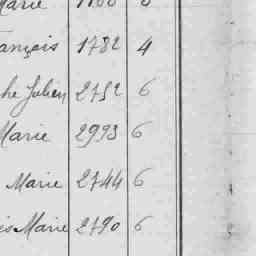 Marie
ançois 1782 4
he Julien 2752 6
Marie 2993 6
Marie 2744 6
is Marie 2790 6